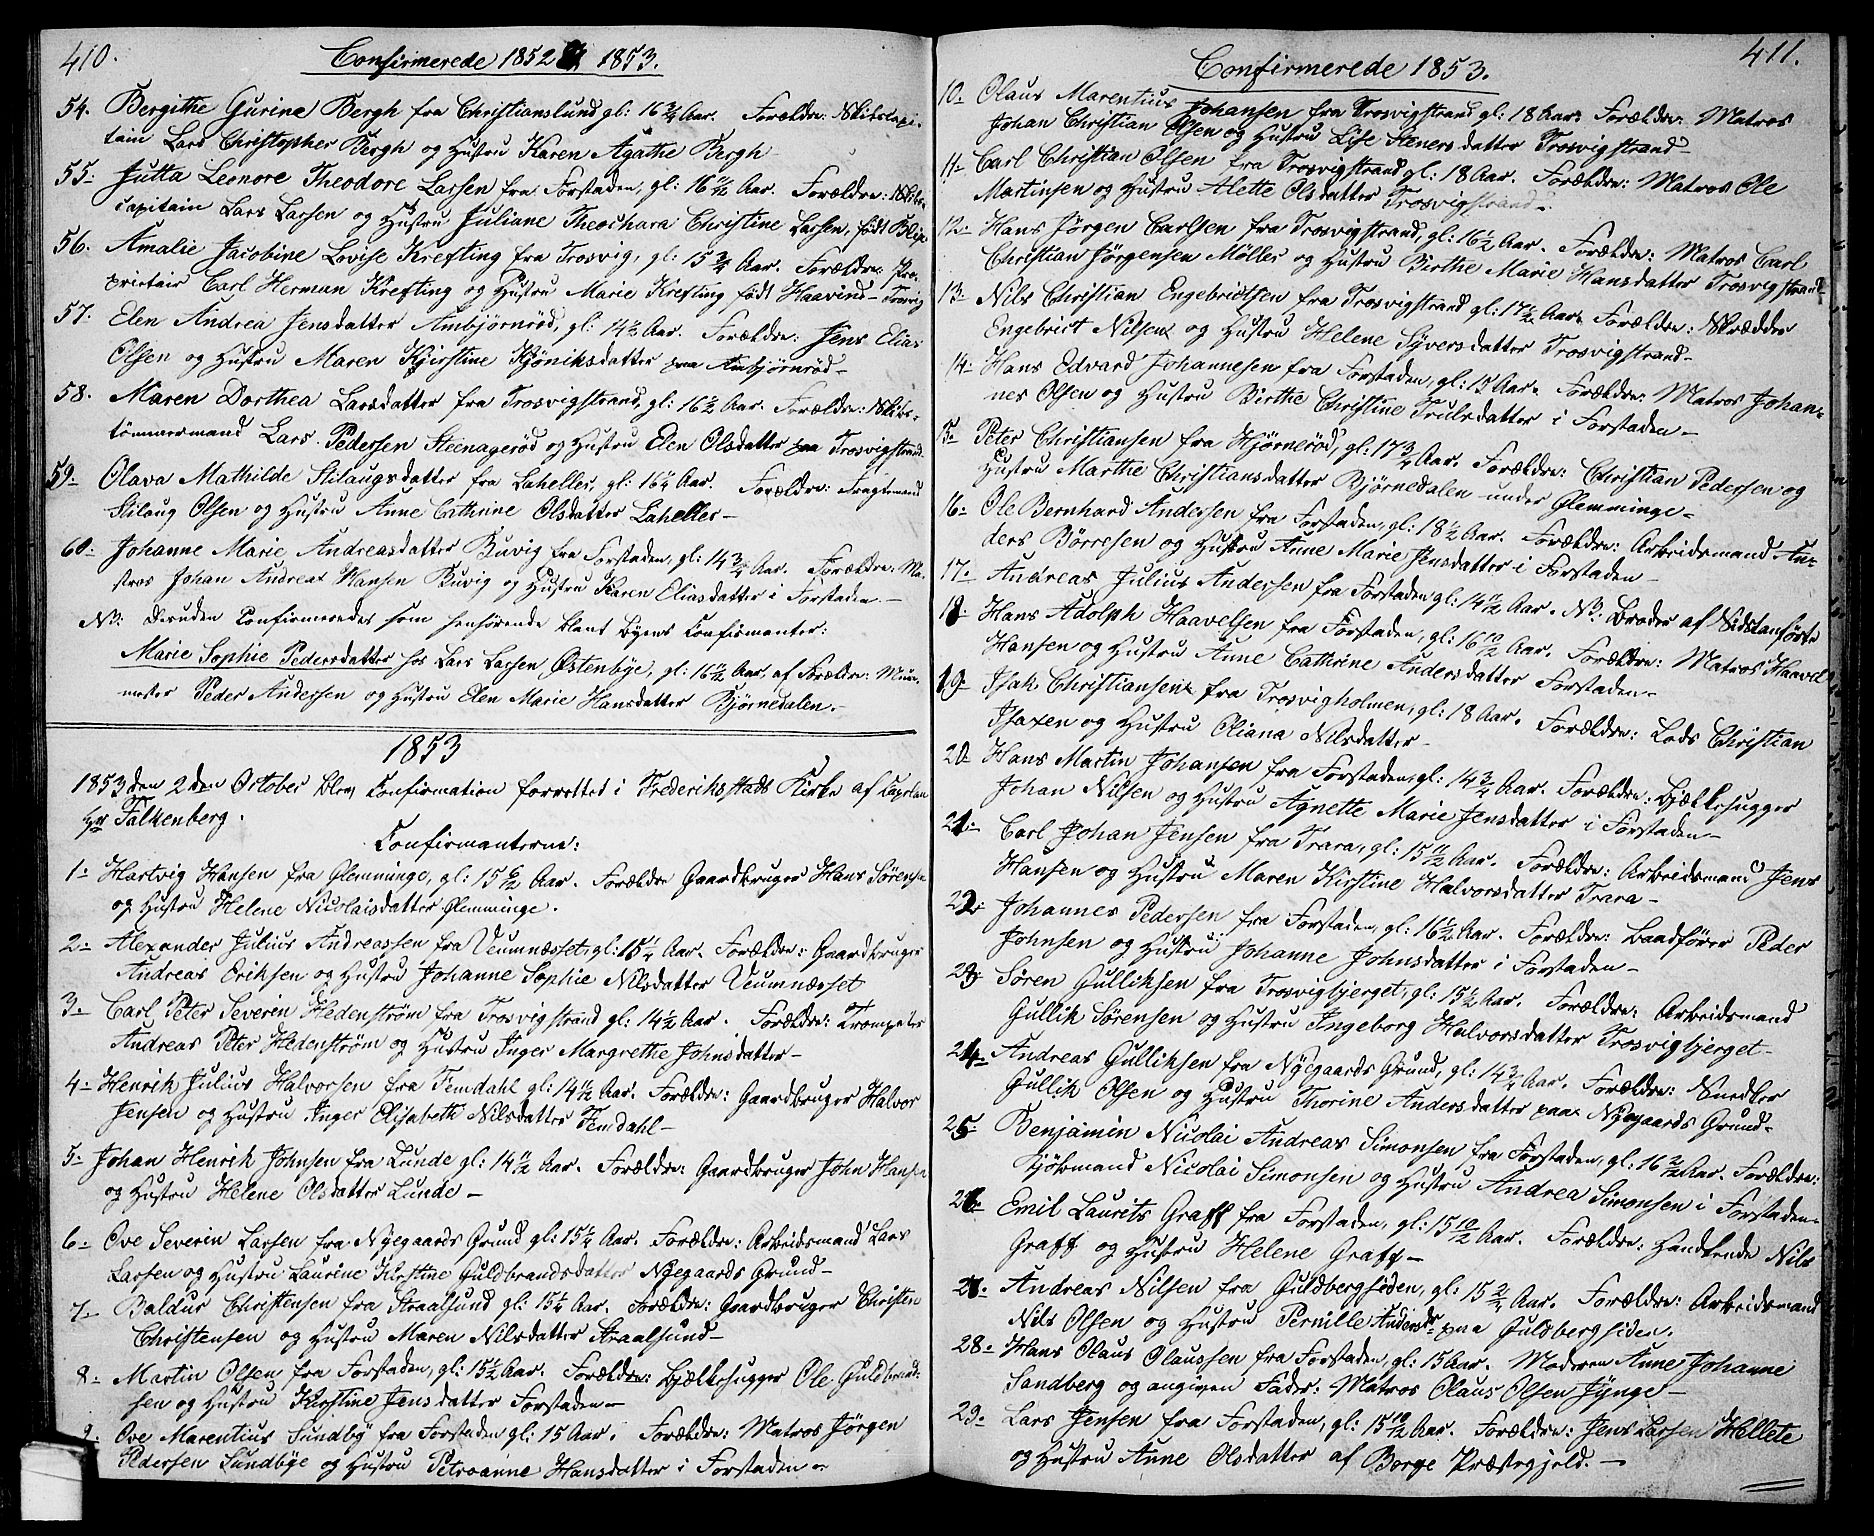 410.
Confirmerede 1852 & 1853.
54. Bergithe Gurine Bergh fra Christianslund gl: 16 3/4 Aar. Forældre: Skibscapi-
tain Lars Christopher Bergh og Hustru Karen Agathe Bergh
55: Jutta Leonore Theodore Larsen fra Forstaden, gl: 16 11/12 Aar. Forældre: Skibs
capitain Lars Larsen og Hustru Juliane Theochara Christine Larsen, født Blix
56. Amalie Jacobine Lovise Krefting fra Trosvig, gl: 15 3/4 Aar. Forældre: Pro-
prietair Carl Herman Krefting og Hustru Marie Krefting født Haavind - Trosvig
57: Elen Andrea Jensdatter Ambjørnrød, gl: 14 1/2 Aar. Forældre: Jens Elias
Olsen og Hustru Maren Kjirstine Kjøniksdatter paa Ambjørnrød -
58. Maren Dorthea Larsdatter fra Trosvigstrand, gl: 16 1/2 Aar. Forældre: Skibs-
tømmermand Lars Pedersen Steenagerød og Hustru Elen Olsdatter paa Trosvigstrand
59: Olava Mathilde Stilaugsdatter fra Laheller, gl: 16 1/4 Aar. Forældre: Fragtemand
Stilaug Olsen og Hustru Anne Cathrine Olsdatter Laheller -
60: Johanne Marie Andreasdatter Buvig fra Forstaden, gl: 14 3/4 Aar. Forældre: Ma-
tros Johan Andreas Hansen Buvig og Hustru Karen Eliasdatter i Forstaden -
NB: Desuden Confirmeredes som henhørende blant Byens Confirmanter:
Marie Sophie Pedersdatter hos Lars Larsen Østenbye, gl: 16 11/12 Aar, af Forældre: Muur-
mester Peder Andersen og Hustru Elen Marie Hansdatter Bjørnedalen. -
1853
1853 den 2den October blev Confirmation forrettet i Frederiksstads Kirke af Capelan
Hr Falkenberg.
Confirmanterne:
1: Hartvig Hansen fra Glemminge, gl: 15 6/12 Aar. Forældre Gaardbruger Hans Sørensen
og Hustru Helene Nicolaisdatter Glemminge.
2: Alexander Julius Andreassen fra Veumnæsset, gl: 15 1/4 Aar. Forældre: Gaardbruger
Andreas Eriksen og Hustru Johanne Sophie Nilsdatter Veumnæsset
3. Carl Peter Severin Hedenstrøm fra Trosvigstrand gl: 14 1/2 Aar. Forældre: Trompeter
Andreas Peter Hedenstrøm og Hustru Inger Margrethe Johnsdatter -
4 - Henrik Julius Halvorsen fra Temdahl gl: 14 1/2 Aar. Forældre: Gaardbruger Halvor
Jensen og Hustru Inger Elisabeth Nilsdatter Temdahl -
5 - Johan Henrik Johnsen fra Lunde gl: 14 11/12 Aar. Forældre: Gaardbruger John Hansen
og Hustru Helene Olsdatter Lunde -
6 - Ove Severin Larsen fra Nygaards Grund gl: 15 1/4 Aar. Forældre: Arbeidsmand Lars
Larsen og Hustru Laurine Kirstine Guldbrandsdatter Nyegaards Grund -
7 - Baldur Christensen fra Straalsund gl: 15 1/4 Aar. Forældre: Gaardbruger Christen
Christensen og Hustru Maren Nilsdatter Straalsund -
8 - Martin Olsen fra Forstaden, gl: 15 1/2 Aar. Forældre: Bjælkehugger Ole Guldbrand-
sen og Hustru Kirstine Jensdatter Forstaden -
9. Ove Marentius Sundby fra Forstaden gl: 15 Aar. Forældre: Matros Jørgen
Pedersen Sundbye og Hustru Petroanne Hansdatter i Forstaden -
411.
Confirmerede 1853.
10 - Olaus Marentius Johansen fra Trosvigstrand gl: 18 Aar. Forældre: Matros
Johan Christian Olsen og Hustru Lise Stenersdatter Trosvigstrand -
11 - Carl Christian Olsen fra Trosvigstrand gl: 18 Aar. Forældre: Matros Ole
Martinsen og Hustru Alette Olsdatter Trosvigstrand -
12 - Hans Jørgen Carlsen fra Trosvigstrand, gl: 16 1/2 Aar. Forældre: Matros Carl
Christian Jørgensen Møller og Hustru Birthe Marie Hansdatter Trosvigstrand -
13 - Nils Christian Engebrigtsen fra Trosvigstrand gl: 17 1/2 Aar. Forældre: Skrædder
Engebrict Nilsen og Hustru Helene Syversdatter Trosvigstrand -
14 - Hans Edvard Johannesen fra Forstaden, gl: 15 Aar. Forældre: Matros Johan-
nes Olsen og Hustru Birthe Christine Trulsdatter i Forstaden -
15 Peter Christiansen fra Hjørnerød, gl: 17 3/4 Aar. Forældre: Christian Pedersen og
Hustru Marthe Christiansdatter Bjørnedalen under Glemminge -
16 - Ole Bernhard Andersen fra Forstaden, gl: 18 1/2 Aar. Forældre: Arbeidsmand An-
ders Børresen og Hustru Anne Marie Jensdatter i Forstaden -
17 - Andreas Julius Andersen fra Forstaden gl: 14 11/12 Aar. NB: Broder af Sidstanførte
18 - Hans Adolph Haavelsen fra Forstaden, gl: 16 10/12 Aar. Forældre: Matros Haavel
Hansen og Hustru Anne Cathrine Andersdatter Forstaden -
19 - Isak Christiansen fra Trosvigholmen, gl: 18 Aar. Forældre: Lods Christian
Isaxen og Hustru Oliana Nilsdatter -
20 Hans Martin Johansen fra Forstaden, gl: 14 3/4 Aar. Forældre: Bjælkehugger
Johan Nilsen og Hustru Agnette Marie Jensdatter i Forstaden -
21 - Carl Johan Jensen fra Trara, gl: 15 11/12 Aar. Forældre: Arbeidsmand Jens
Hansen og Hustru Maren Kirstine Halvorsdatter Trara -
22 - Johannes Pedersen fra Forstaden, gl: 16 1/2 Aar. Forældre: Baadfører Peder
Johnsen og Hustru Johanne Johnsdatter i Forstaden -
23 Søren Gulliksen fra Trosvigbjerget, gl: 15 1/2 Aar. Forældre: Arbeidsmand
Gullik Sørensen og Hustru Ingeborg Halvorsdatter Trosvigbjerget -
24 - Andreas Gulliksen fra Nyegaards Grund, gl: 14 3/4 Aar. Forældre: Snedker
Gullik Olsen og Hustru Thorine Andersdatter paa Nyegaards Grund -
25 - Benjamin Nicolai Andreas Simonsen fra Forstaden, gl: 16 2/12 Aar. Forældre:
Kjøbmand Nicolai Simonsen og Hustru Andrea Simonsen i Forstaden -
26 Emil Laurits Graff fra Forstaden, gl: 15 10/12 Aar. Forældre: Handlende Nils
Graff og Hustru Helene Graff -
27. Andreas Nilsen fra Guldbergsiden, gl: 15 2/4 Aar. Forældre: Arbeidsmand
Nils Olsen og Hustru Pernille Andersdr paa Guldbergsiden.
28 - Hans Olaus Olaussen fra Forstaden, gl: 15 Aar. Moderen Anne Johanne
Sandberg og angiven Fader: Matros Olaus Olsen Jynge -
29 - Lars Jensen fra Forstaden, gl: 15 10/12 Aar. Forældre: Jens Larsen Hellete
og Hustru Anne Olsdatter af Borge Præstegjeld. -